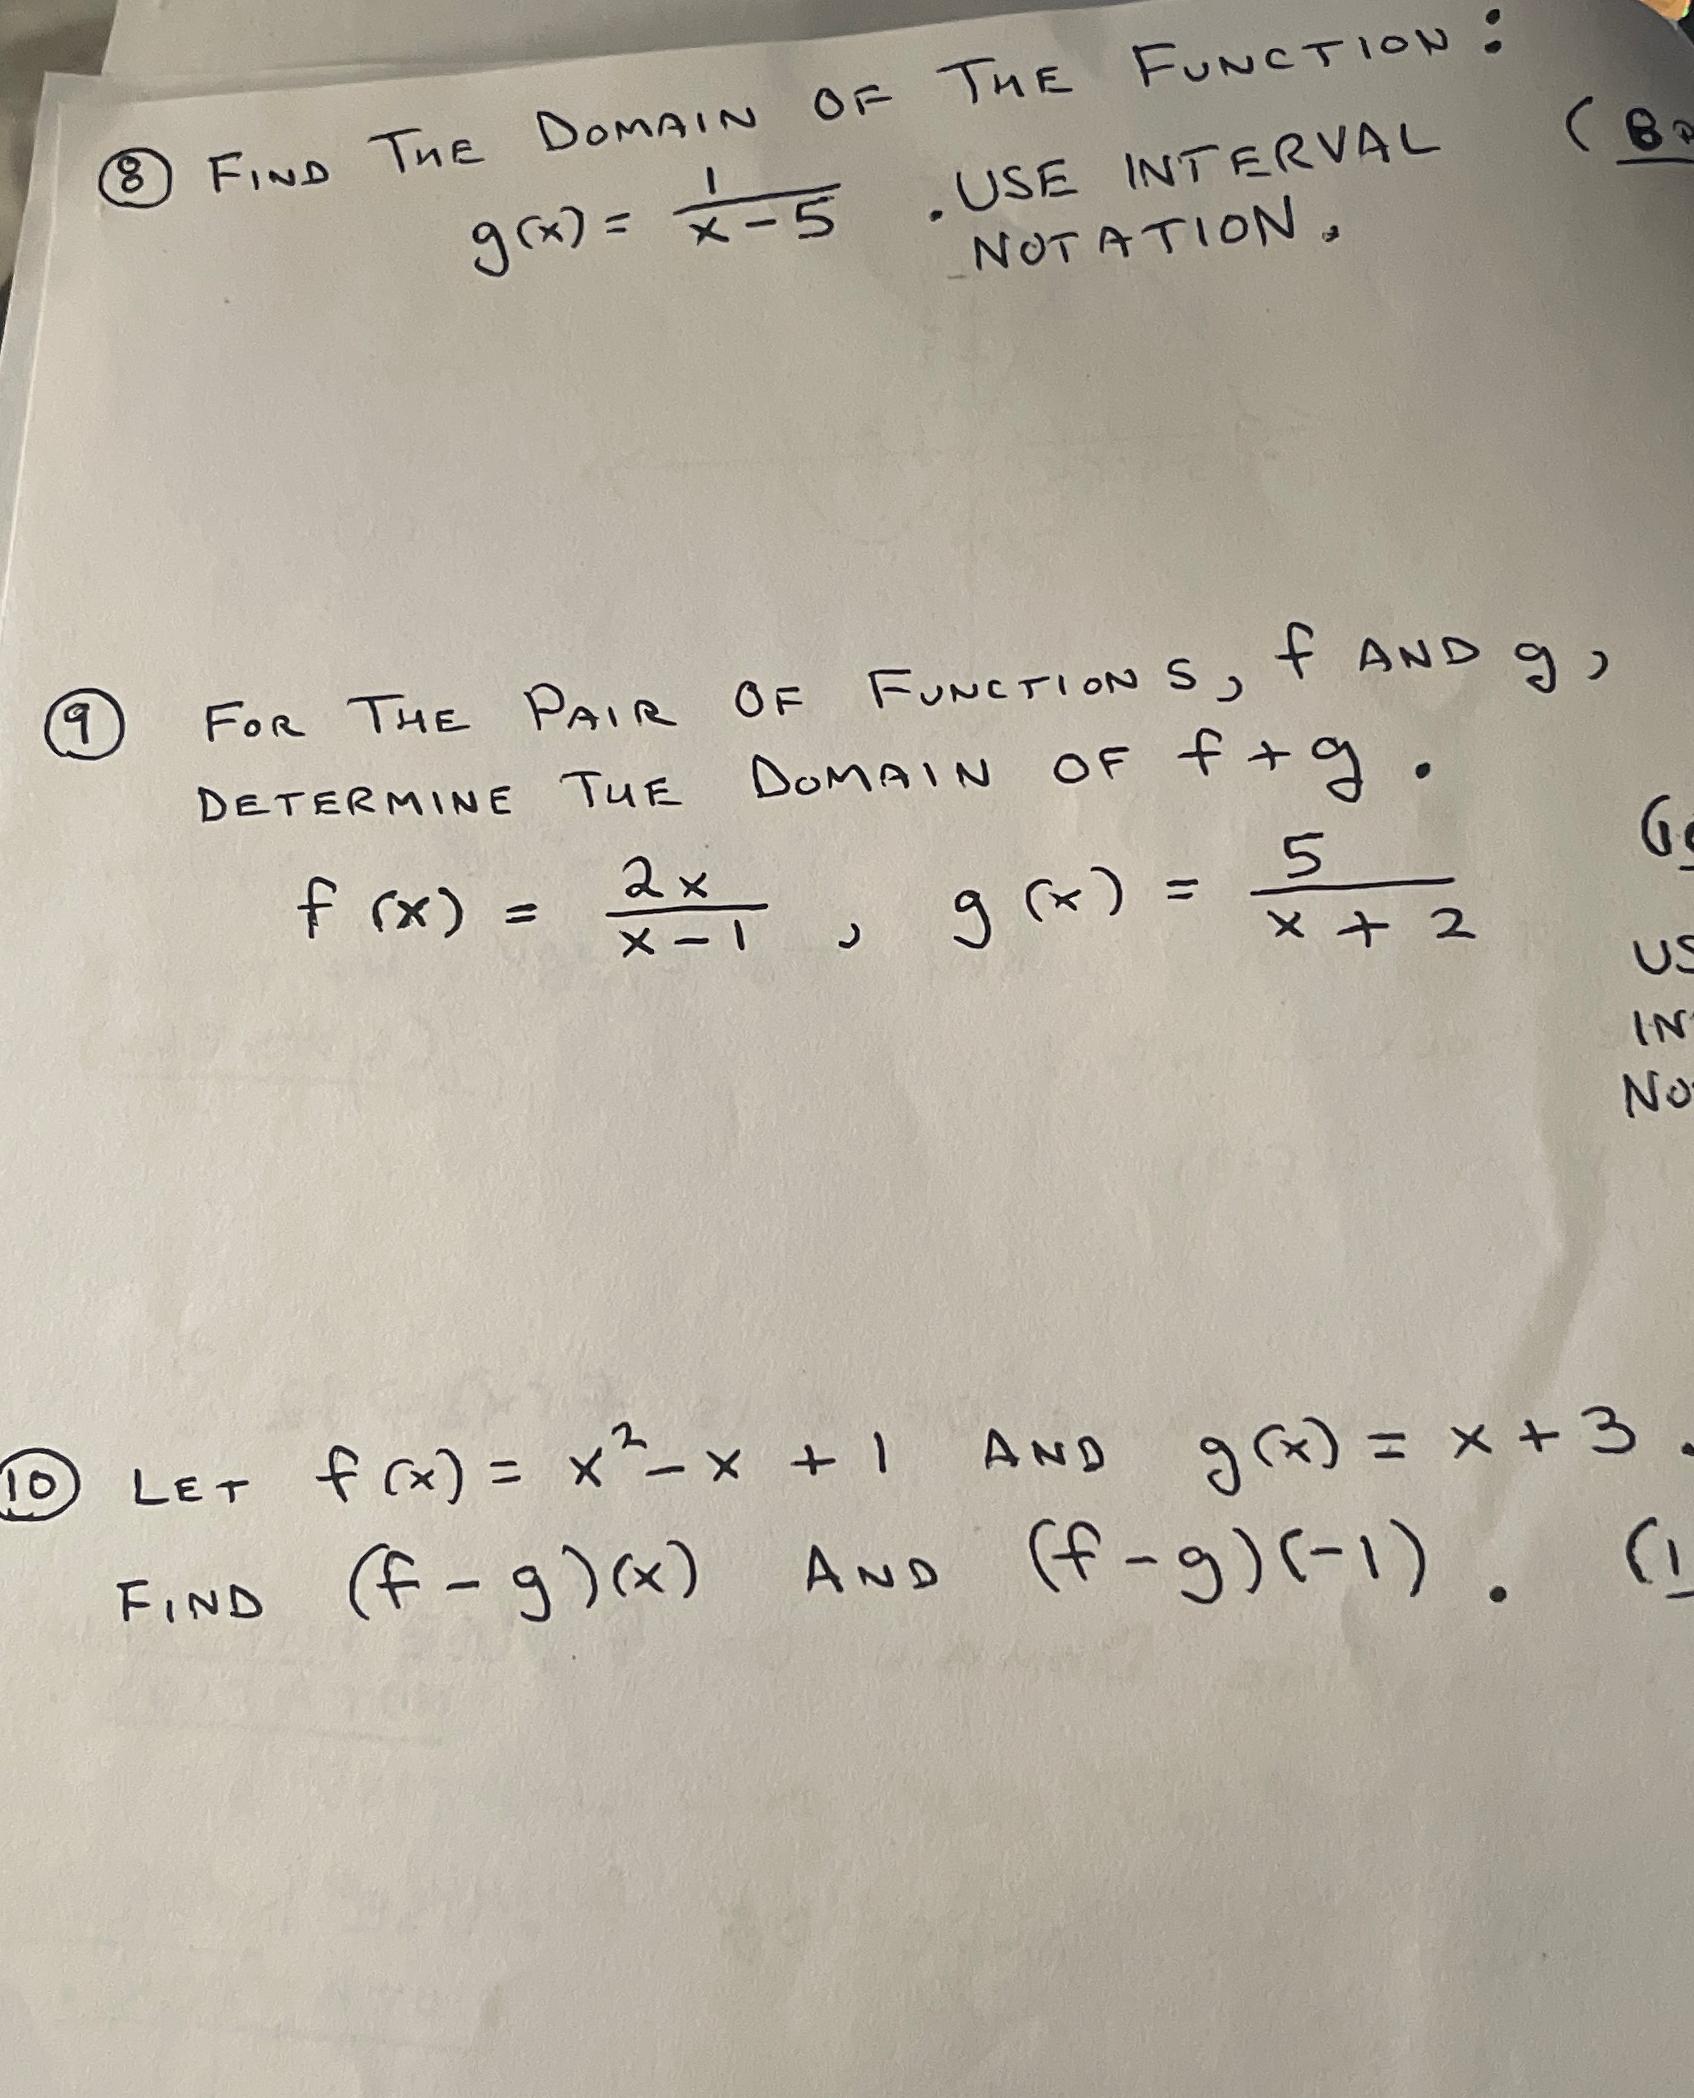 ⑧ FIND THE DOMAIN OF THE FUNCTION:
g(x) = 1/(x-5) . USE INTERVAL
NOTATION.
⑨ FOR THE PAIR OF FUNCTIONS, f AND g,
DETERMINE THE DOMAIN OF f+g.
f(x) = 2x/(x-1), g(x) = 5/(x+2)
⑩ LET f(x) = x²-x+1 AND g(x) = x+3.
FIND (f-g)(x) AND (f-g)(-1).